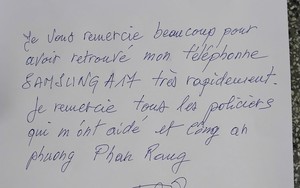 Je vous remercie beaucoup pour
avoir retrouvé mon téléphonne
SAMSUNG A17 très rapidement.
Je remercie tous les policiers
qui m'ont aidé et công an
phuong Phan Rang